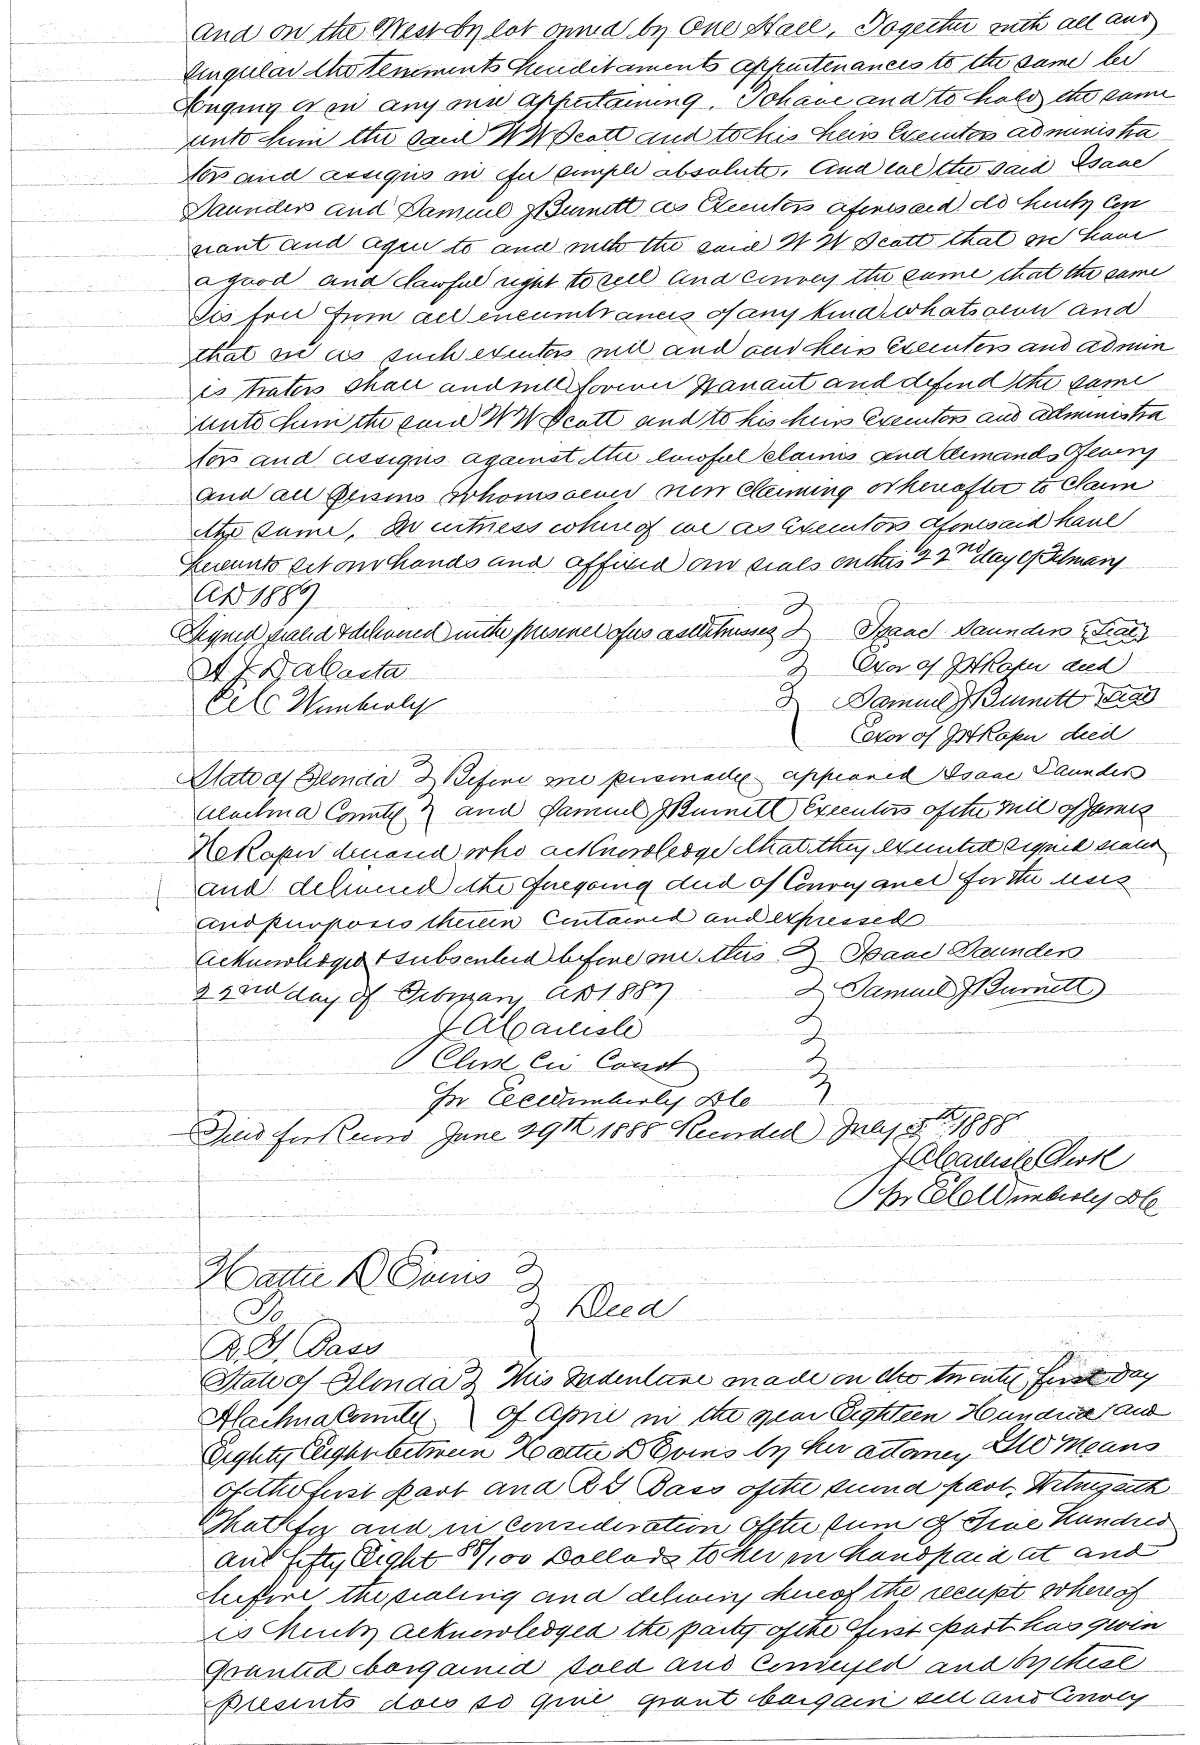 and on the West by lot owned by One Hall, Together with all and
singular the tenements hereditaments appurtenances to the same be
longing or in any wise appertaining. To have and to hold the same
unto him the said W W Scott and to his heirs Executors administra
tors and assigns in fee simple absolute. And we the said Isaac
Saunders and Samuel J Burnett as Executors aforesaid do hereby cov
nant and agree to and with the said W W Scott that we have
a good and lawful right to sell and convey the same that the same
is free from all encumbrances of any kind whatsoever and
that we as such executors will and our heirs Executors and admin
is trators shall and will forever Warrant and defend the same
unto him the said W W Scott and to his heirs Executors and administra
tors and assigns against the lawful claims and demands of every
and all persons whomsoever now claiming or hereafter to claim
the same, In witness whereof we as Executors aforesaid have
hereunto set our hands and affixed our seals on this 22nd day of February
AD 1889
Signed sealed & delivered in the presence of us as Witnesses } Isaac Saunders {Seal}
A J DaCosta } Exor of J H Roper decd
C C Wimberly } Samuel J Burnett {Seal}
Exor of J H Roper decd
State of Florida } Before me personally appeared Isaac Saunders
Alachua County } and Samuel J Burnett Executors of the Will of James
H Roper deceased who acknowledge that they executed signed sealed
and delivered the foregoing deed of Conveyance for the uses
and purposes therein Contained and expressed
Acknowledged & subscribed before me this } Isaac Saunders
22nd day of February AD 1887 } Samuel J Burnett
J A Carlisle
Clerk Cir Court
Per C C Wimberly DC
Filed for Record June 29th 1888 Recorded July 5th 1888
J A Carlisle Clerk
Per C C Wimberly DC
Hattie D Evins }
To } Deed
R. G. Bass
State of Florida } This Indenture made on the twenty first day
Alachua County } of April in the year Eighteen Hundred and
Eighty Eight between Hattie D Evins by her attorney Means
of the first part and R G Bass of the second part, Witnesseth
That for and in consideration of the sum of Five Hundred
and fifty Eight 88/100 Dollars to her in hand paid at and
before the sealing and delivery hereof the receipt whereof
is hereby acknowledged the party of the first part has given
granted bargained sold and Conveyed and by these
presents does so give grant bargain sell and Convey